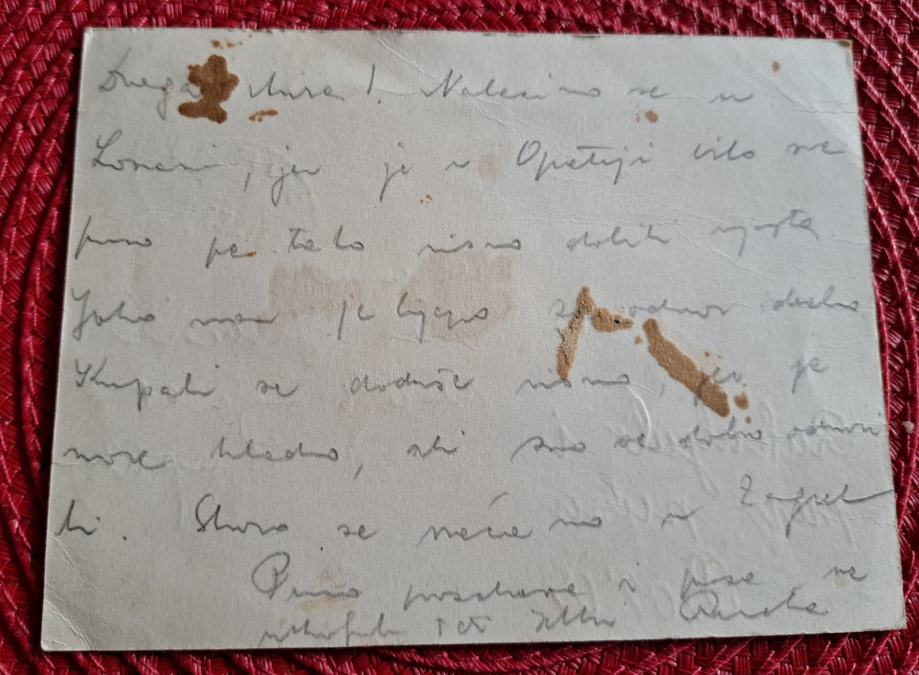 Draga Mira! Nalazimo se u
Lovrani, jer je u Opatiji bilo sve
puno pa tako nismo dobili mjesta
Jako nam je lijepo za odmor
Kupali se doduše nismo, jer je
more hladno, ali smo se dobro odmori
li. Skoro se vraćamo u Zagreb
Puno pozdrava i pusa